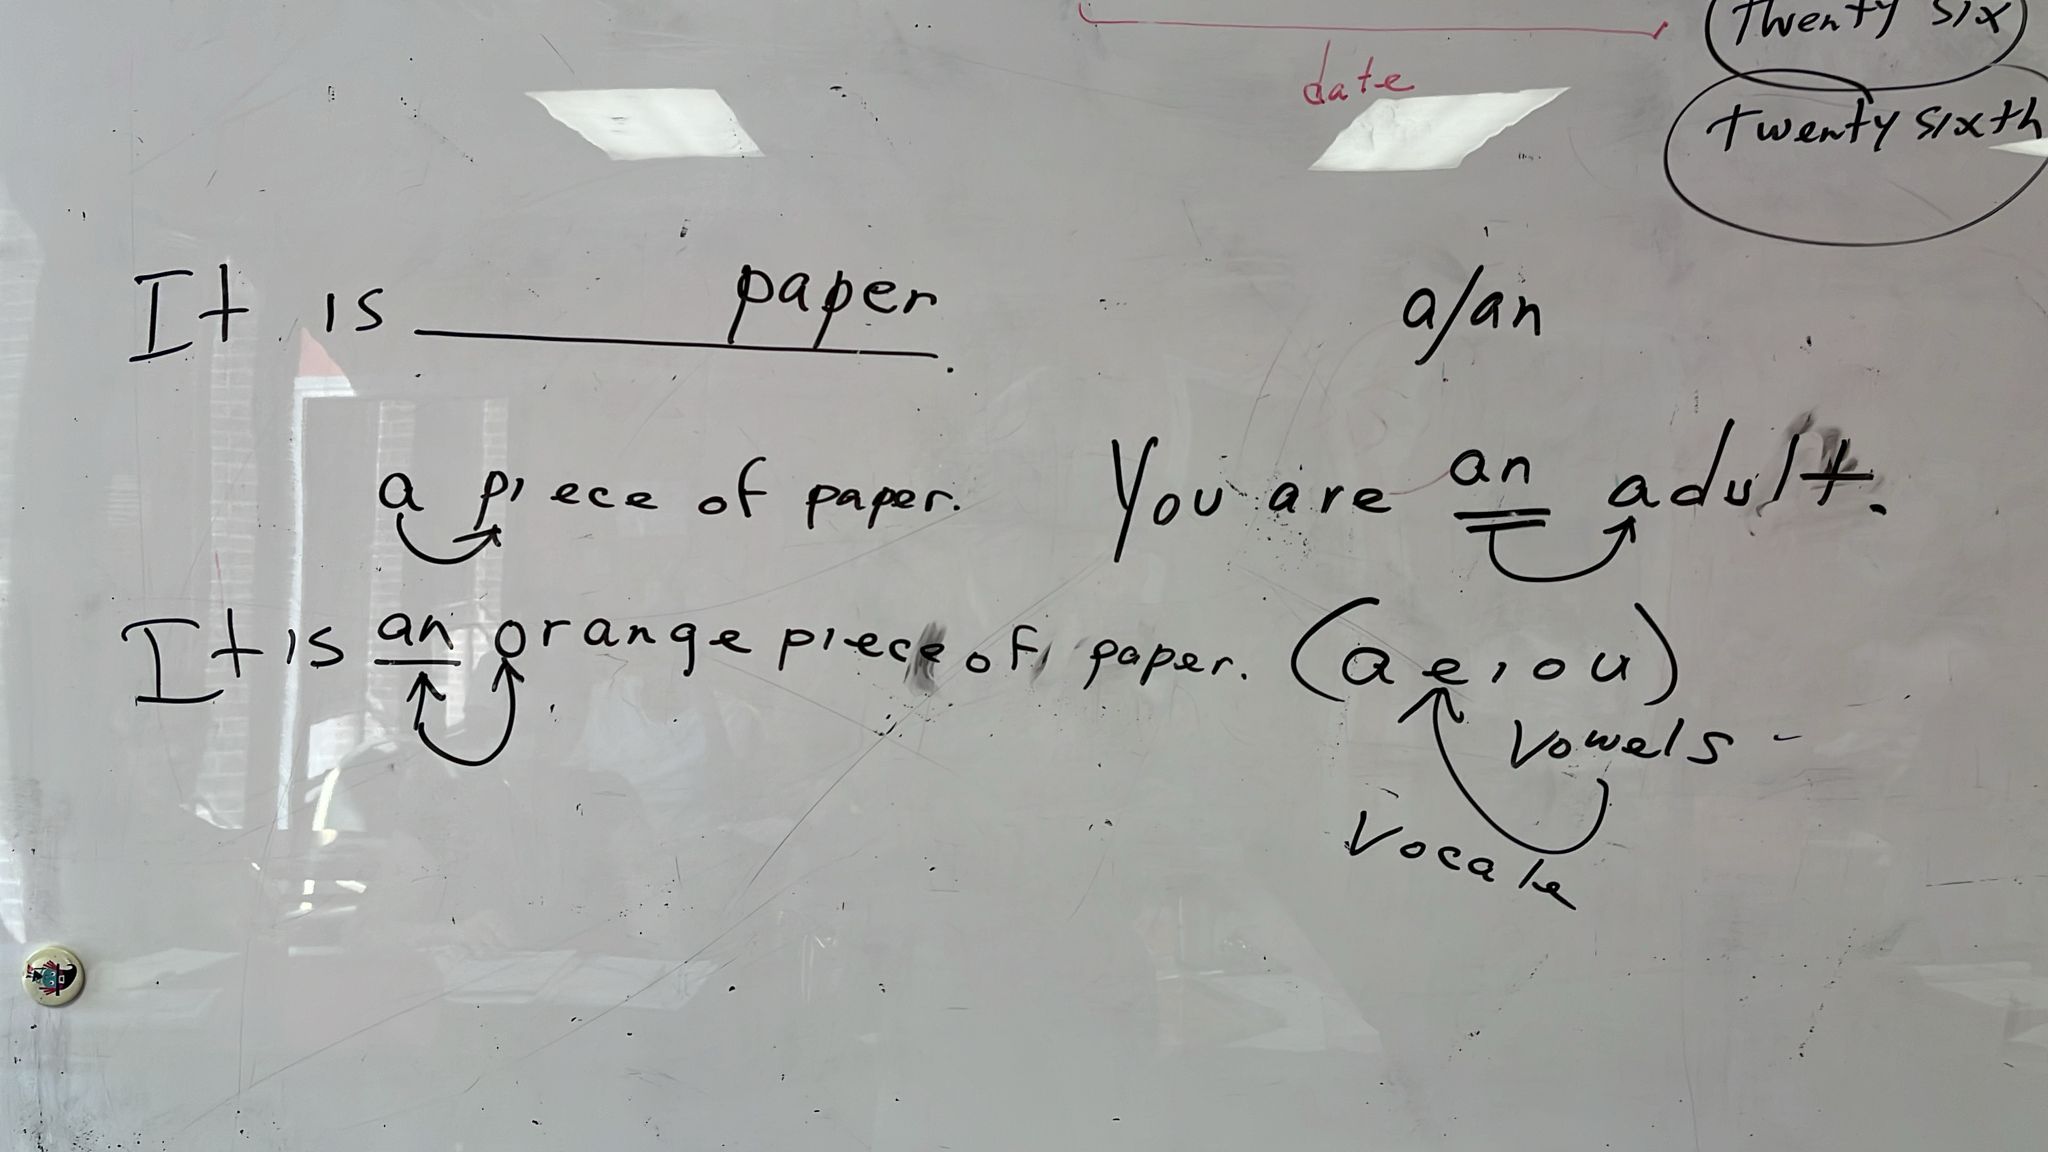 twenty six
date
twenty sixth
It is ________ paper.
a/an
a piece of paper.
You are an adult.
It is an orange piece of paper. (a e i o u)
vowels
Vocale